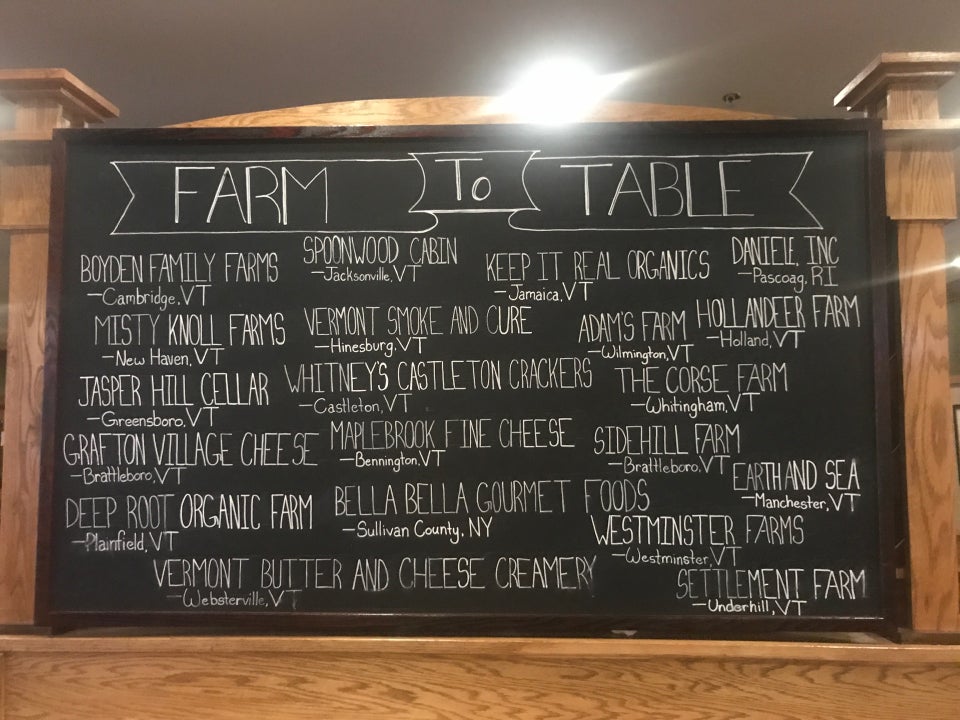 FARM To TABLE
BOYDEN FAMILY FARMS
—Cambridge, VT
SPOONWOOD CABIN
—Jacksonville, VT
KEEP IT REAL ORGANICS
—Jamaica, VT
DANIELE, INC
—Pascoag, RI
MISTY KNOLL FARMS
—New Haven, VT
VERMONT SMOKE AND CURE
—Hinesburg, VT
ADAM'S FARM
—Wilmington, VT
HOLLANDEER FARM
—Holland, VT
JASPER HILL CELLAR
—Greensboro, VT
WHITNEY'S CASTLETON CRACKERS
—Castleton, VT
THE CORSE FARM
—Whitingham, VT
GRAFTON VILLAGE CHEESE
—Brattleboro, VT
MAPLEBROOK FINE CHEESE
—Bennington, VT
SIDEHILL FARM
—Brattleboro, VT
EARTH AND SEA
—Manchester, VT
DEEP ROOT ORGANIC FARM
—Plainfield, VT
BELLA BELLA GOURMET FOODS
—Sullivan County, NY
WESTMINSTER FARMS
—Westminster, VT
VERMONT BUTTER AND CHEESE CREAMERY
—Websterville, VT
SETTLEMENT FARM
—Underhill, VT